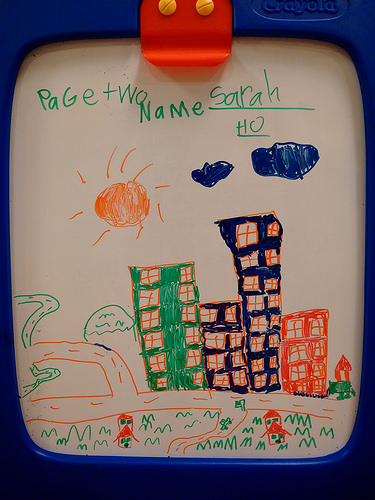 Crayola
PaGe two
Name Sarah
HO